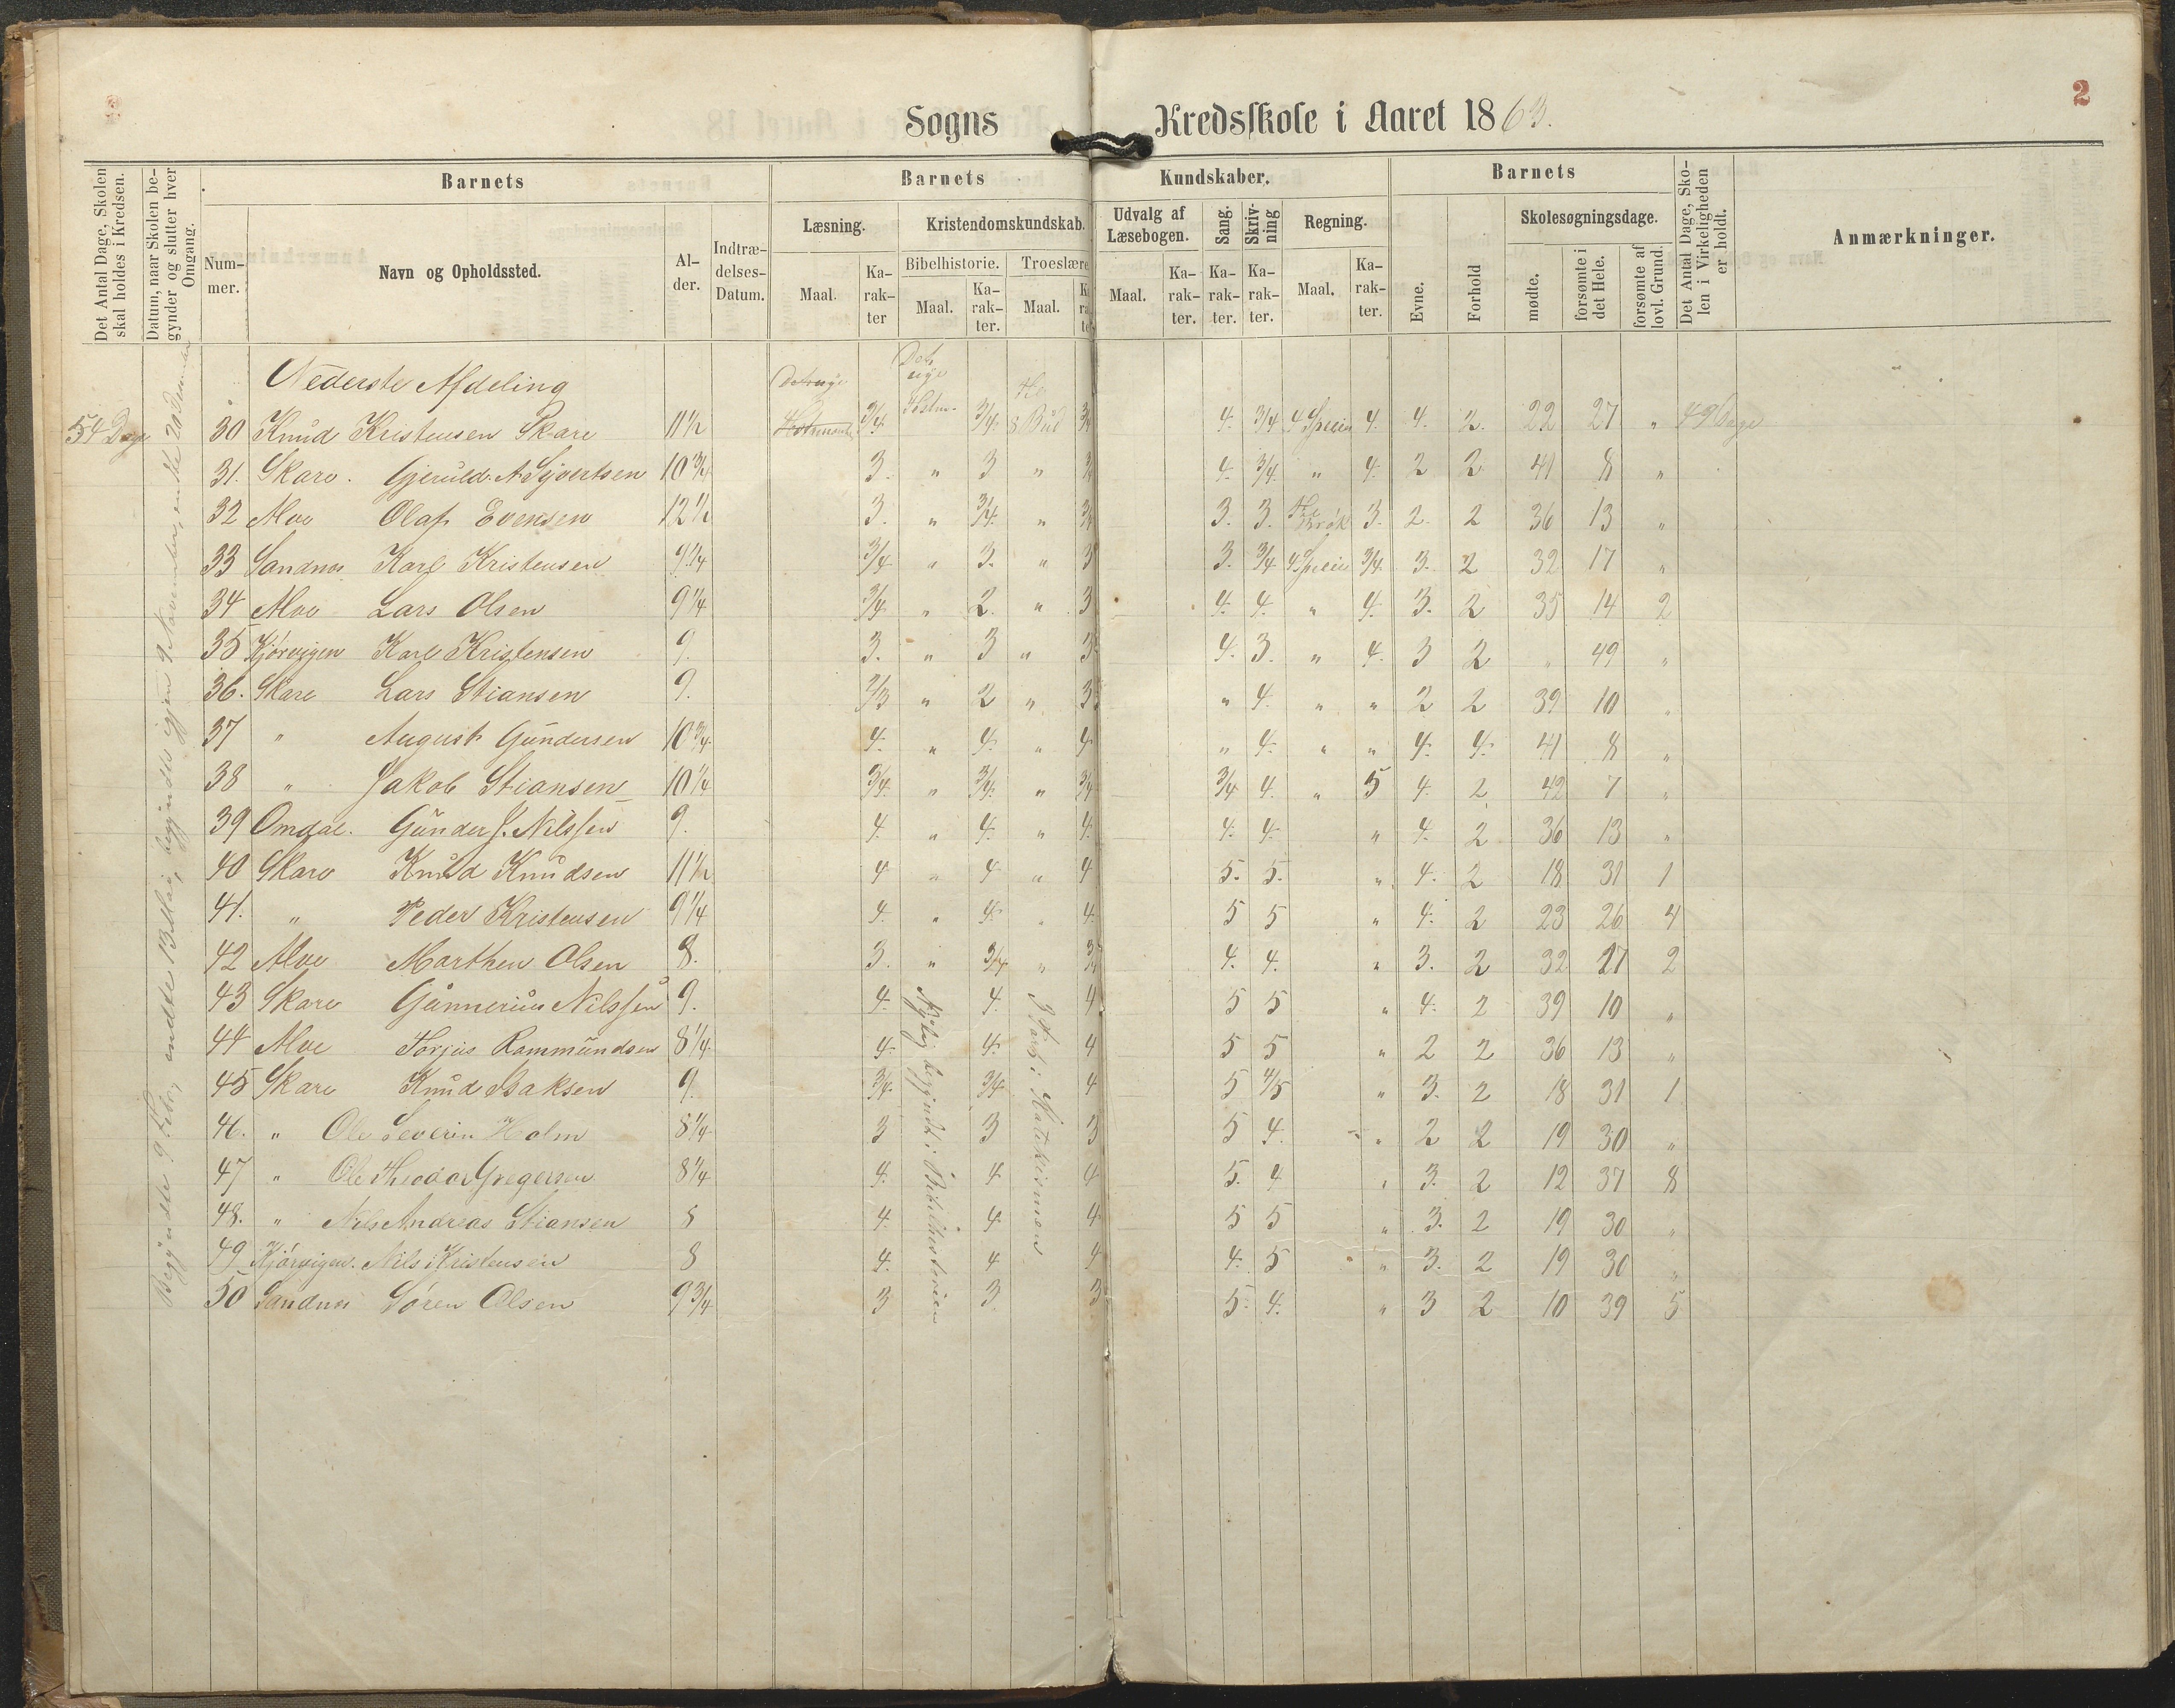 2
Sogns Kredsskole i Aaret 1863.
Det Antal Dage, Skolen skal holdes i Kredsen.
Datum, naar Skolen begynder og slutter hver Omgang.
Barnets
Barnets Kundskaber.
Barnets
Det Antal Dage, Skolen i Virkeligheden er holdt.
Anmærkninger.
Nummer.
Navn og Opholdssted.
Alder.
Indtrædelses-Datum.
Læsning.
Kristendomskundskab.
Udvalg af Læsebogen.
Sang.
Skrivning
Regning.
Evne.
Forhold
Skolesøgningsdage.
Bibelhistorie.
Troeslære
Maal.
Karakter
Maal.
Karakter.
Maal.
Karakter
Maal.
Karakter.
Karakter.
Karakter.
Maal.
Karakter.
mødte.
forsømte i det Hele.
forsømte af lovl. Grund.
Nederste Afdeling
54 Dage 30 Knud Kristensen Skare 11½ 3/4 3/4 8 Bud 3/4 4. 3/4 4 Specier 4. 4. 2. 22 27 " 49 Dage
31. Skare. Gjeruld A. Syvertsen 10¾ 3. " 3 " 3/4 4. 3/4. " 4. 2 2 41 8 "
32 Alve Olaf Evensen 12½ 3. " 3/4. " 3/4 3. 3. Brøk 3. 2. 2 36 13 "
33 Sandnes Karl Kristensen 9¼ 3/4 " 3. " 3 3. 3/4 4 Specier 3/4 3. 2 32 17 "
34 Alve Lars Olsen 9¼ 3/4 " 2. " 3 4. 4. " 4. 3. 2 35 14 2
35 Kjørvigen Karl Kristensen 9. 3. " 3 " 3 4. 3. " 4. 3 2 " 49 "
36. Skare Lars Stiansen 9. 2/3 " 2 " 3 " 4. " " 2 2 39 10 "
37 " August Gundersen 10¾ 4. " 4. " 4 " 4. " " 4. 4. 41 8 "
38 " Jakob Stiansen 10¼ 3/4 " 3/4 " 3/4 3/4 4. " 5 4. 2 42 7 "
39 Omdal. Gunder J. Nilssen 9. 4. " 4. " 4. 4. 4. " 4. 2 36 13 "
40 Skare Knud Knudsen 11½ 4 " 4 " 4 5. 5. " 4. 2 18 31 1
41. " Peder Kristensen 9¼ 4. " 4. " 4. 5 5 " 4. 2 23 26 4
42 Alve Marthen Olsen 8. 3. " 3/4 " 3/4 4. 4. " 3. 2 32 17 2
43 Skare Gunnerius Nilssen 9. 4. 4. 4 5 5 " 4. 2 39 10 "
44 Alve Torjus Rommundsen 8¼ 4. 4. 4 5 5 " 2 2 36 13 "
45 Skare Knud Isaksen 9. 3/4. 3/4 4 5 4/5 " 3. 2 18 31 1
46. " Ole Severin Holm 8¼ 3 3 3 5 4. " 2 2 19 30 "
47 " Ole Theodor Gregersen 8¼ 4. 4. 4 5. 4 " 3. 2 12 37 8
48. " Nils Andreas Stiansen 8 4. 4. 4 5 5 " 3. 2 19 30 "
49 Kjørvigen. Nils Kristensen 8 4. 4 4 4. 5 " 3. 2 19 30 "
50 Sandnes Søren Olsen 9¾ 3 3. 3 5. 4. " 3 2 10 39 5
Begyndte 9 Febr, endte 13 Mai, begyndte igjen 9 November, endte 20 December
begyndt i Bibelhistorien
3 Part i Katekismen